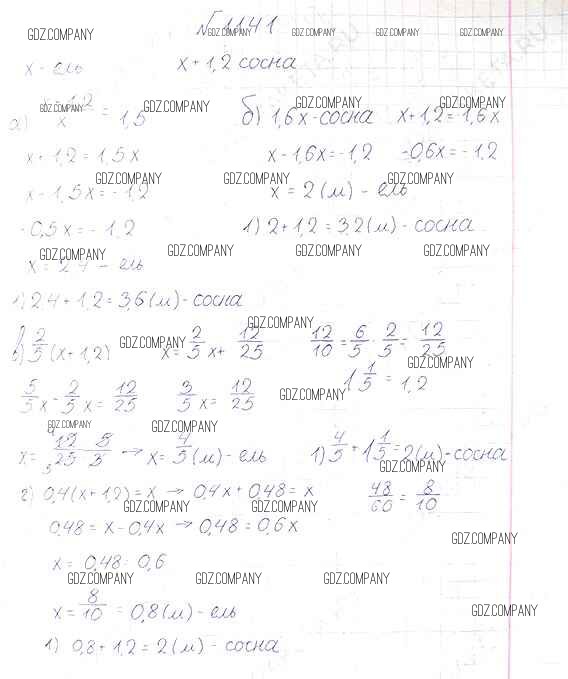 №1141
GDZ.COMPANY GDZ.COMPANY GDZ.COMPANY GDZ.COMPANY GDZ.COMPANY
x - ель x + 1,2 сосна
GDZ.COMPANY GDZ.COMPANY GDZ.COMPANY GDZ.COMPANY
а) x + 1,2 / x = 1,5 б) 1,6x - сосна x + 1,2 = 1,6x
x + 1,2 = 1,5x x - 1,6x = -1,2 -0,6x = -1,2
GDZ.COMPANY GDZ.COMPANY GDZ.COMPANY
x - 1,5x = -1,2 x = 2 (м) - ель
-0,5x = -1,2 1) 2 + 1,2 = 3,2 (м) - сосна
GDZ.COMPANY GDZ.COMPANY GDZ.COMPANY GDZ.COMPANY
x = 2,4 - ель
1) 2,4 + 1,2 = 3,6 (м) - сосна
GDZ.COMPANY
в) 2/5 (x + 1,2) x = 2/5 x + 12/25 12/10 = 6/5 · 2/5 = 12/25
GDZ.COMPANY GDZ.COMPANY
5/5 x - 2/5 x = 12/25 3/5 x = 12/25 1 1/5 = 1,2
GDZ.COMPANY
GDZ.COMPANY GDZ.COMPANY
x = 12/25 · 5/3 → x = 4/5 (м) - ель 1) 4/5 + 1 1/5 = 2 (м) - сосна
GDZ.COMPANY
г) 0,4(x + 1,2) = x → 0,4x + 0,48 = x 48/60 = 8/10
GDZ.COMPANY GDZ.COMPANY
0,48 = x - 0,4x → 0,48 = 0,6x
GDZ.COMPANY
x = 0,48 : 0,6
GDZ.COMPANY GDZ.COMPANY GDZ.COMPANY
x = 8/10 = 0,8 (м) - ель
GDZ.COMPANY
1) 0,8 + 1,2 = 2 (м) - сосна